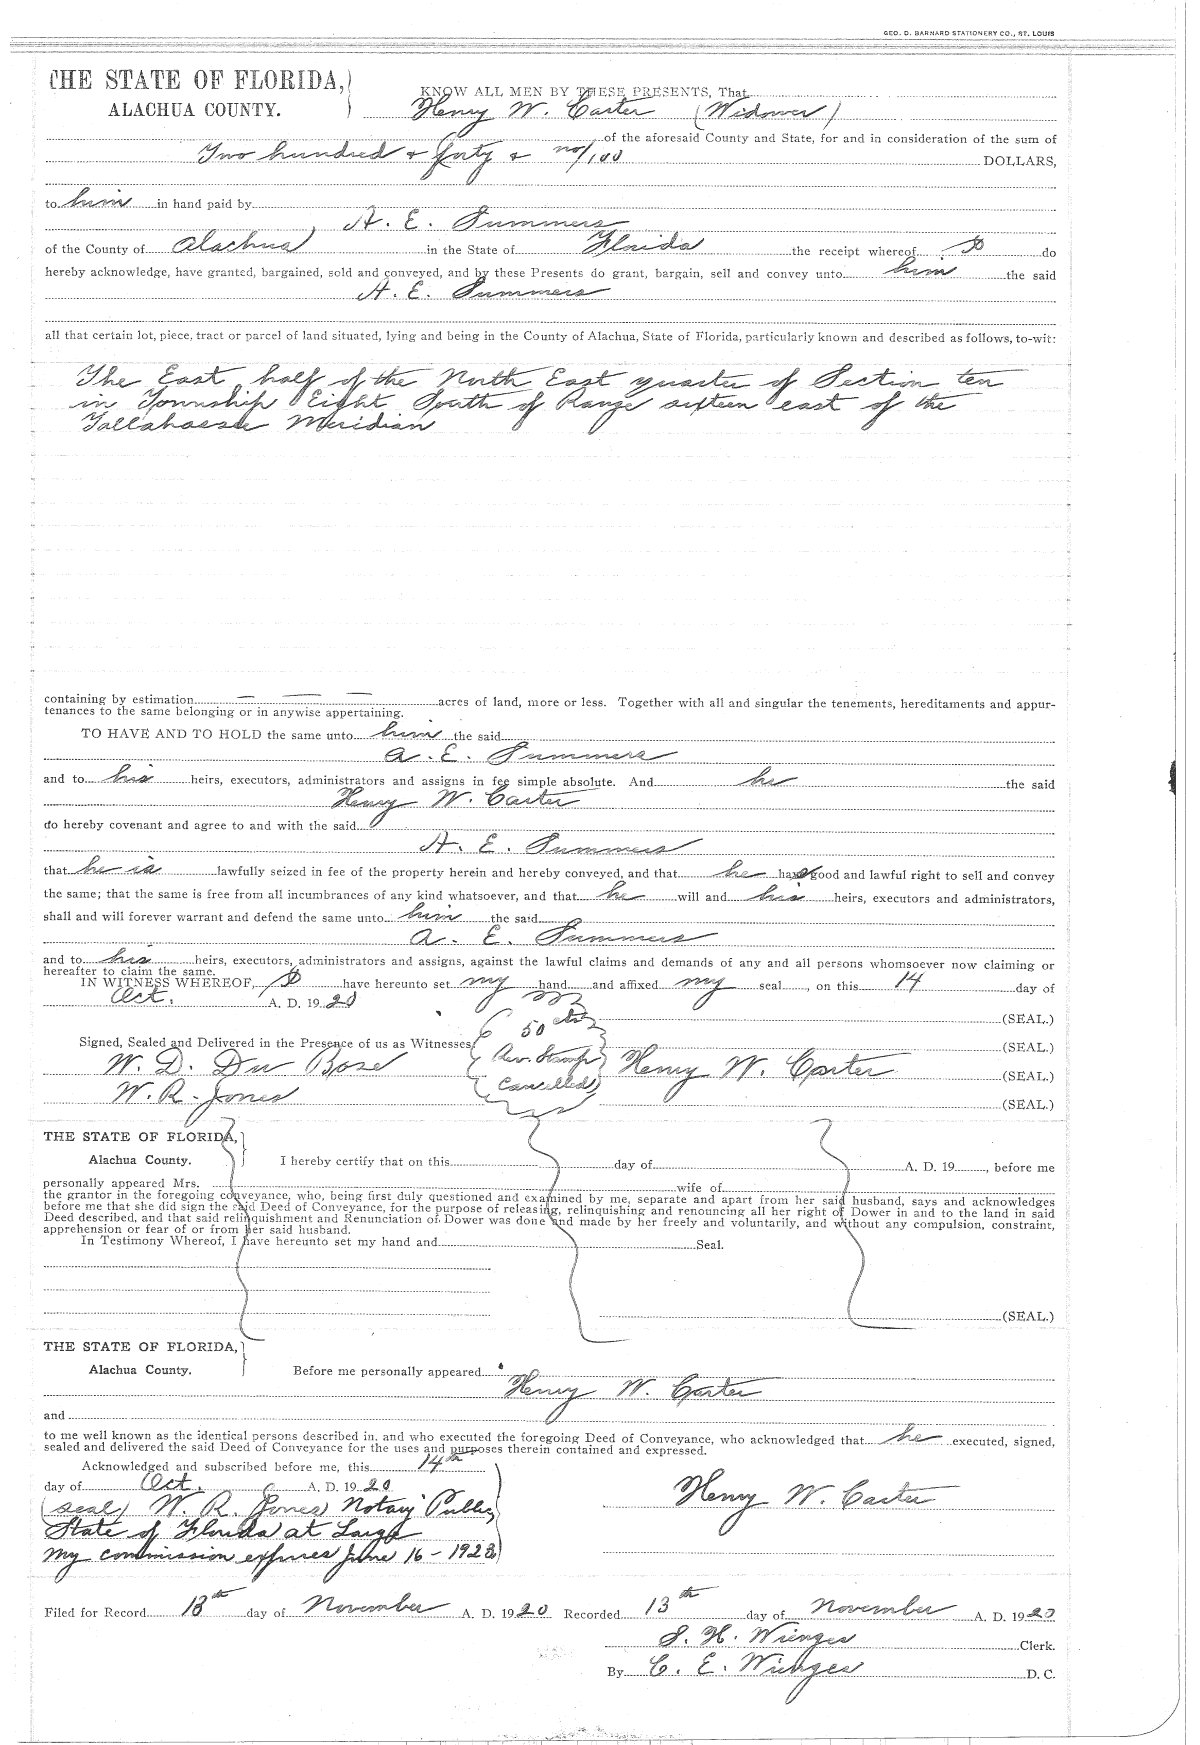 GEO. D. BARNARD STATIONERY CO., ST. LOUIS
THE STATE OF FLORIDA,
ALACHUA COUNTY.
KNOW ALL MEN BY THESE PRESENTS, That
Henry W. Carter (Widower)
of the aforesaid County and State, for and in consideration of the sum of
Two hundred & forty & no/100 DOLLARS,
to him in hand paid by
A. E. Summers
of the County of Alachua in the State of Florida the receipt whereof I do
hereby acknowledge, have granted, bargained, sold and conveyed, and by these Presents do grant, bargain, sell and convey unto him the said
A. E. Summers
all that certain lot, piece, tract or parcel of land situated, lying and being in the County of Alachua, State of Florida, particularly known and described as follows, to-wit:
The East half of the North East quarter of Section ten
in Township Eight South of Range sixteen east of the
Tallahassee Meridian
containing by estimation — — — acres of land, more or less. Together with all and singular the tenements, hereditaments and appur-
tenances to the same belonging or in anywise appertaining.
TO HAVE AND TO HOLD the same unto him the said
A. E. Summers
and to his heirs, executors, administrators and assigns in fee simple absolute. And he the said
Henry W. Carter
do hereby covenant and agree to and with the said
A. E. Summers
that he is lawfully seized in fee of the property herein and hereby conveyed, and that he has good and lawful right to sell and convey
the same; that the same is free from all incumbrances of any kind whatsoever, and that he will and his heirs, executors and administrators,
shall and will forever warrant and defend the same unto him the said
A. E. Summers
and to his heirs, executors, administrators and assigns, against the lawful claims and demands of any and all persons whomsoever now claiming or
hereafter to claim the same.
IN WITNESS WHEREOF, I have hereunto set my hand and affixed my seal, on this 14 day of
Oct. A. D. 1920
(SEAL.)
Signed, Sealed and Delivered in the Presence of us as Witnesses: (SEAL.)
W. D. Du Bose
50 cts
Rev. Stamp
Cancelled
Henry W. Carter (SEAL.)
W. R. Jones (SEAL.)
THE STATE OF FLORIDA,
Alachua County. I hereby certify that on this day of A. D. 19 , before me
personally appeared Mrs. wife of
the grantor in the foregoing conveyance, who, being first duly questioned and examined by me, separate and apart from her said husband, says and acknowledges
before me that she did sign the said Deed of Conveyance, for the purpose of releasing, relinquishing and renouncing all her right of Dower in and to the land in said
Deed described, and that said relinquishment and Renunciation of Dower was done and made by her freely and voluntarily, and without any compulsion, constraint,
apprehension or fear of or from her said husband.
In Testimony Whereof, I have hereunto set my hand and Seal.
(SEAL.)
THE STATE OF FLORIDA,
Alachua County. Before me personally appeared
Henry W. Carter
and
to me well known as the identical persons described in, and who executed the foregoing Deed of Conveyance, who acknowledged that he executed, signed,
sealed and delivered the said Deed of Conveyance for the uses and purposes therein contained and expressed.
Acknowledged and subscribed before me, this 14th
day of Oct. A. D. 1920
Henry W. Carter
(seal) W. R. Jones Notary Public
State of Florida at Large
My commission expires June 16 - 1923
Filed for Record 13th day of November A. D. 1920 Recorded 13th day of November A. D. 1920
S. H. Wienges Clerk.
By C. E. Wienges D. C.